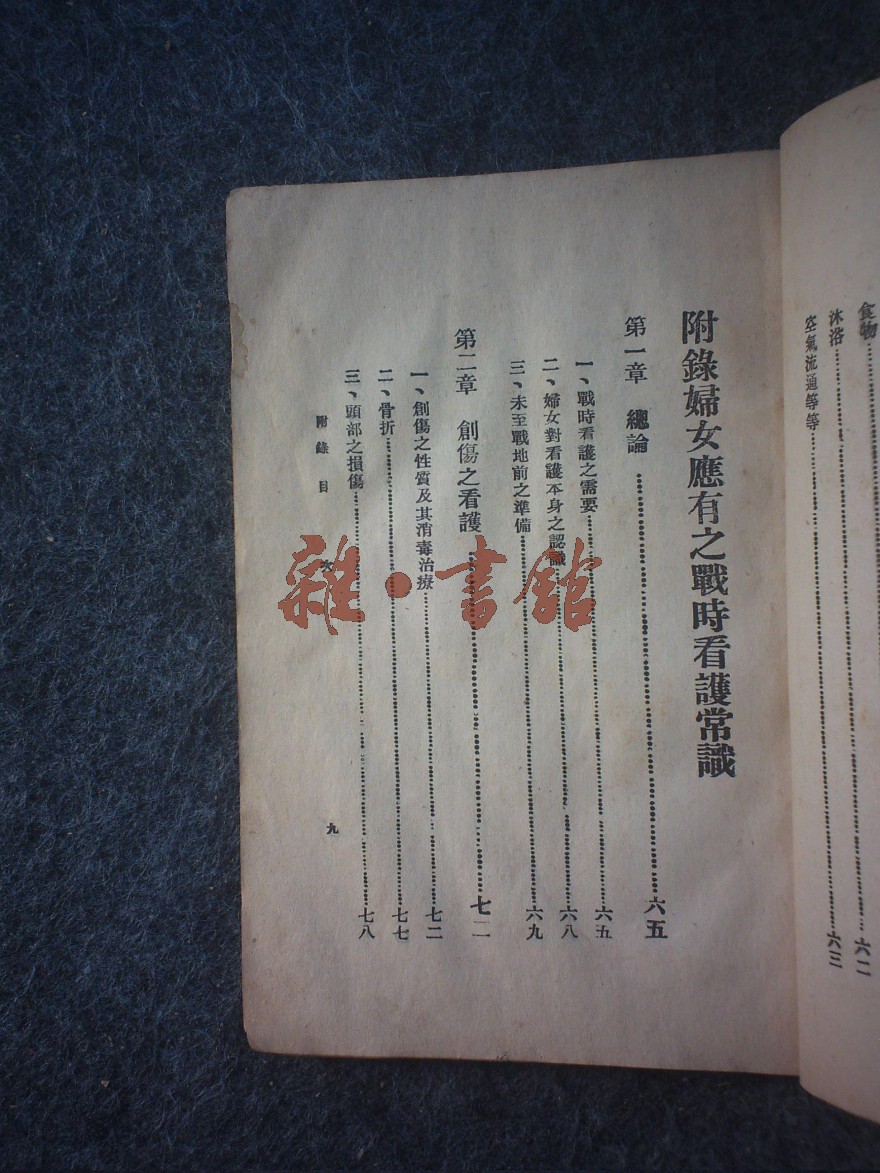 食物……六二
沐浴……六三
空氣流通等等……
附錄婦女應有之戰時看護常識
第一章 總論……六五
一、戰時看護之需要……六五
二、婦女對看護本身之認識……六八
三、未至戰地前之準備……六九
第二章 創傷之看護……七二
一、創傷之性質及其消毒治療……七二
二、骨折……七七
三、頭部之損傷……七八
附錄目次
九
雜·書館